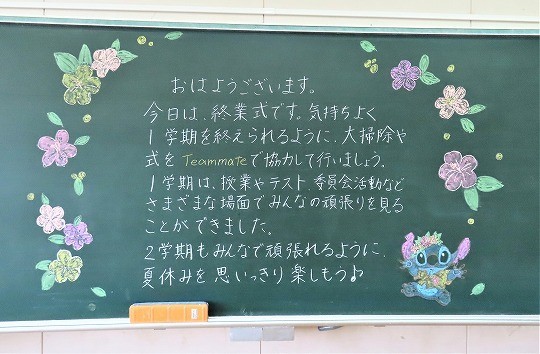 おはようございます。
今日は、終業式です。気持ちよく
1学期を終えられるように、大掃除や
式をTeammateで協力して行いましょう。
1学期は、授業やテスト、委員会活動など
さまざまな場面でみんなの頑張りを見る
ことができました。
2学期もみんなで頑張れるように、
夏休みを思いっきり楽しもう♪